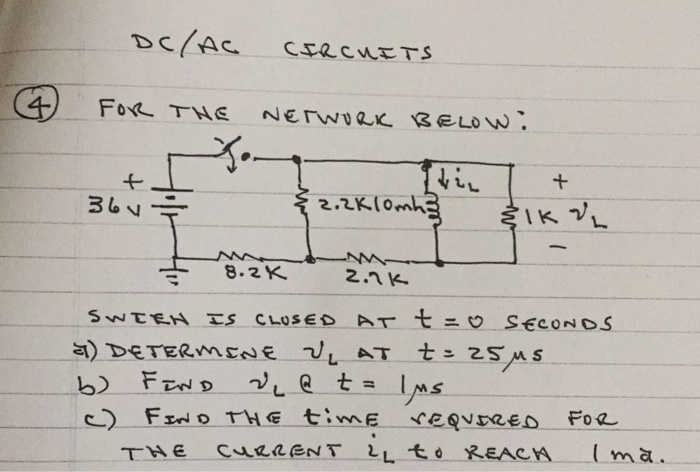 DC/AC CIRCUITS
4 FOR THE NETWORK BELOW:
+ iL +
36 V 2.2K 10mh 1K VL
-
8.2K 2.7K
SWICH IS CLOSED AT t = 0 SECONDS
a) DETERMINE VL AT t = 25 μs
b) FIND VL @ t = 1 μs
c) FIND THE time REQUIRED FOR
THE CURRENT iL to REACH 1 ma.